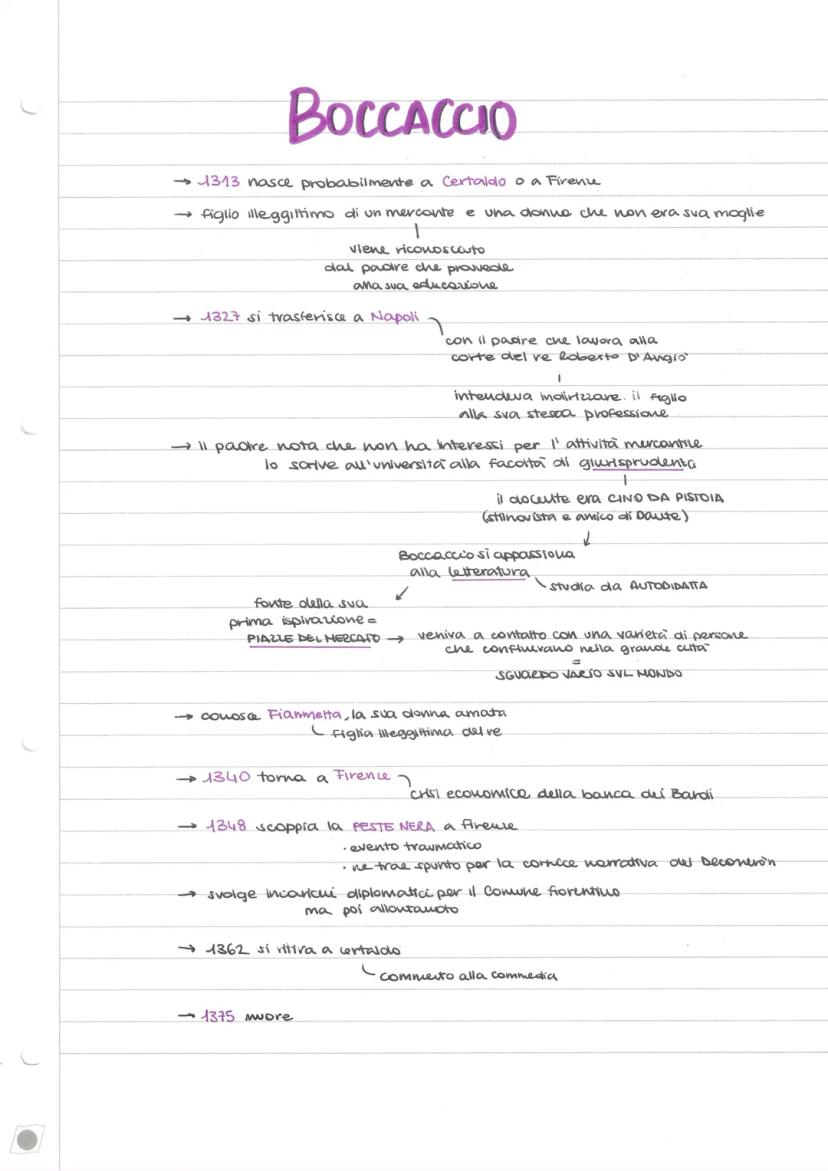 BOCCACCIO
→ 1313 nasce probabilmente a Certaldo o a Firenze
→ figlio illeggittimo di un mercante e una donna che non era sua moglie
viene riconosciuto
dal padre che provvede
alla sua educazione
→ 1327 si trasferisce a Napoli
con il padre che lavora alla
corte del re Roberto D'Angiò
intendeva indirizzare il figlio
alla sua stessa professione
→ il padre nota che non ha interessi per l'attività mercantile
lo scrive all'università alla facoltà di giurisprudenza
il docente era CINO DA PISTOIA
(stilnovista e amico di Dante)
Boccaccio si appassiona
alla letteratura
studia da AUTODIDATTA
fonte della sua
prima ispirazione =
PIAZZE DEL MERCATO → veniva a contatto con una varietà di persone
che confluivano nella grande città
=
SGUARDO VARIO SUL MONDO
→ conosce Fiammetta, la sua donna amata
figlia illeggittima del re
→ 1340 torna a Firenze
crisi economica della banca dei Bardi
→ 1348 scoppia la PESTE NERA a Firenze
· evento traumatico
· ne trae spunto per la cornice narrativa del Decameròn
→ svolge incarichi diplomatici per il Comune fiorentino
ma poi allontanato
→ 1362 si ritira a Certaldo
commento alla commedia
→ 1375 muore